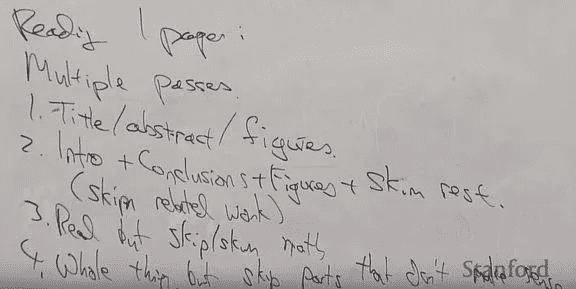 Reading 1 paper:
Multiple passes.
1. Title/abstract/figures.
2. Intro + Conclusions + Figures + Skim rest.
(skip related work)
3. Read but skip/skim math
4. Whole thing but skip parts that don't make sense
Stanford